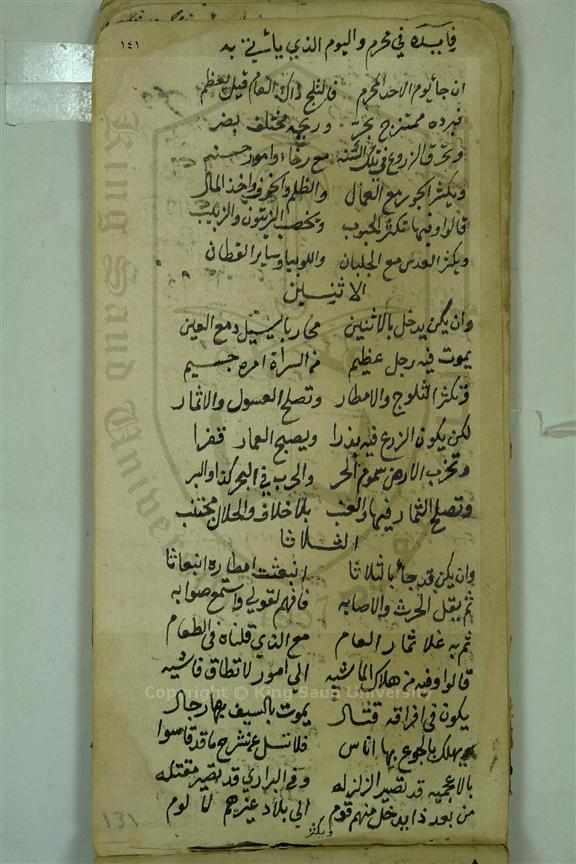 ١٤١
فايده في محرم واليوم الذي يأتي به
ان جا يوم الاحد المحرم فالثلج ذاك العام قيل يعظم
فبرده ممتزج بحر وريحه مختلف يضر
وتحرق الزروع في تلك السنه مع رخاء وامور حسنه
ويكثر الجور مع العمال والظلم والخوف واخذ المال
قالوا وفيها تكثر الحبوب وتخصب الزيتون والزبيب
ويكثر العدس مع الجلبان واللوبيا وساير القطان
الاثنين
وان يكن يدخل بالاثنين محاربا يسيل دمع العين
يموت فيه رجل عظيم من السراة امره جسيم
وتكثر الثلوج والامطار وتصلح العسول والاثمار
لكن يكون الزرع فيه بذرا ويصبح العمار قفرا
وتخرب الارض سموم الحر والحرب في البحر كذا والبر
وتصلح الثمار فيها والعنب بلا خلاف والحلال مجتنب
الثلاثا
وان يكن قد جا بالثلاثا انبعثت امطاره انبعاثا
ثم يقل الحرث والاصابه فافهم لقولي واستمع صوابه
ثم به غلا ثمار العام مع الذي قلناه في الطعام
قالوا وفيه من هلاك الماشيه الي امور لا تطاق فاشيه
يكون في افراقه قتال يموت بالسيف بها رجال
يهلك بالجوع بها اناس فلا تسل عن شرح ما قد قاسوا
بالاعجميه قد تصير الزلزله وفي البراري قد تصير مقتله
من بعد ذا يدخل منهم قوم الي بلاد غيرهم لا لوم
ويكثر
131
King Saud University
Copyright © King Saud University